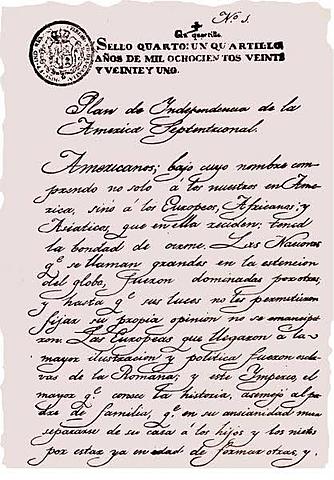 N.º 1.
Un quartillo
SELLO QUARTO: UN QUARTILLO,
AÑOS DE MIL OCHOCIENTOS VEINTE
Y VEINTE Y UNO.
Plan de Independencia de la
America Septentrional.
Americanos; bajo cuyo nombre com-
prendo no solo á los nuestros en Ame-
rica, sino á los Europeos, Africanos; y
Asiaticos, que en ella reciden; tened
la bondad de oirme. Las Naciones
q.e se llaman grandes en la estencion
del globo, fueron dominadas por otras,
y hasta q.e sus luces no les permitieron
fijar su propia opinion no se emancipa-
ron. Las Europeas que llegaron á la
mayor ilustracion y politica fueron escla-
vas de la Romana; y este Imperio, el
mayor q.e conoce la historia, asemejó al pa-
dre de familia, q.e en su ancianidad mira
separarse de su casa á los hijos y los nietos
por estar ya en edad de formar otras, y